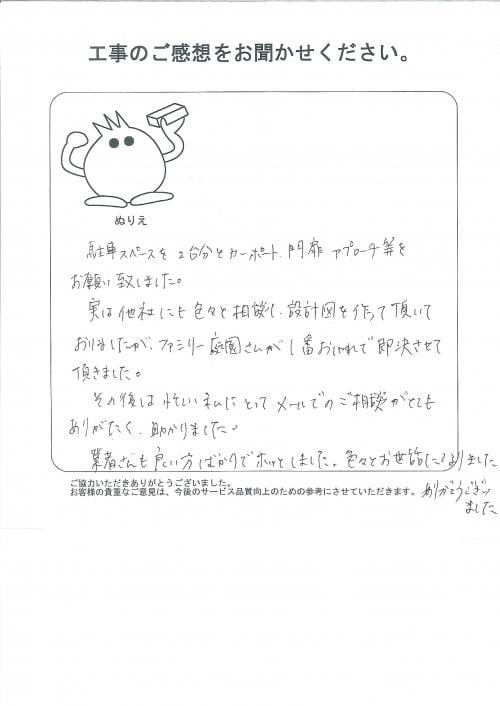 工事のご感想をお聞かせください。
ぬりえ
駐車スペースを2台分とカーポート、門扉 アプローチ等を
お願い致しました。
実は他社にも色々と相談し、設計図を作って頂いて
おりましたが、ファミリー庭園さんが1番おしゃれで即決させて
頂きました。
その後は忙しい私にとってメールでのご相談がとても
ありがたく、助かりました。
業者さんも良い方ばかりでホッとしました。色々とお世話になりました
ご協力いただきありがとうございました。
お客様の貴重なご意見は、今後のサービス品質向上のための参考にさせていただきます。
ありがとうござい
ました